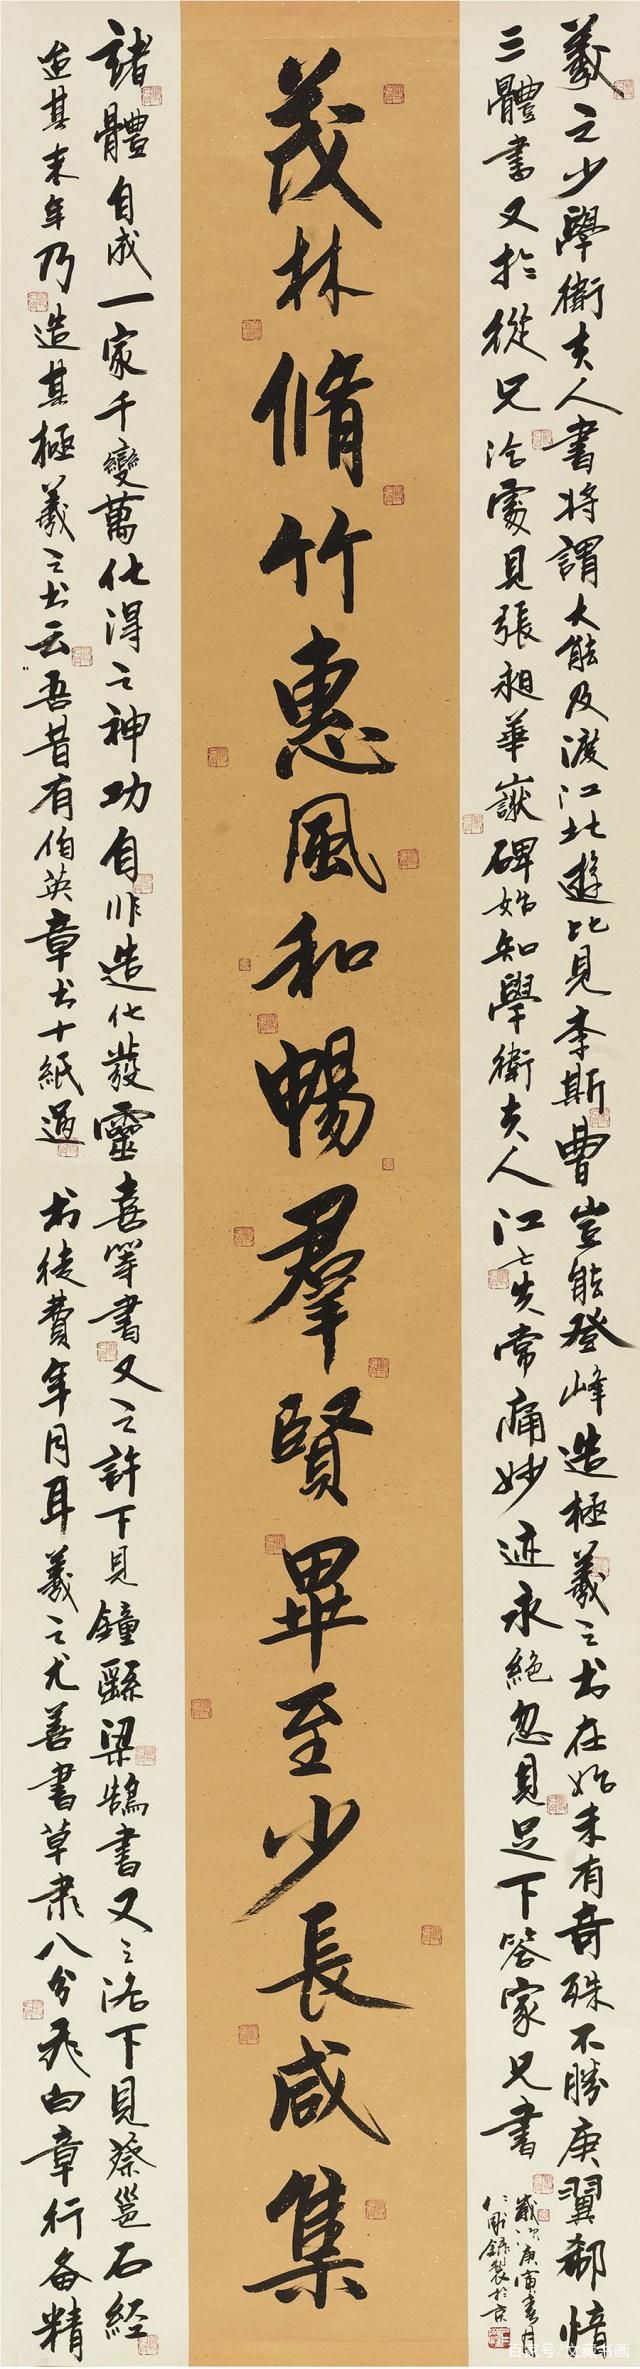 羲之少學衛夫人書將謂大能及渡江北遊比見李斯曹豈能登峰造極羲之书在始未有奇殊不勝庾翼郗愔
三體書又於從兄洽處見張昶華嶽碑始知學衛夫人江亡失常痛妙迹永絕忽見足下答家兄書
歲次庚寅春月
錄製於京
茂林脩竹惠風和暢羣賢畢至少長咸集
諸體自成一家千變萬化得之神功自非造化發靈喜等書又之許下見鐘繇梁鵠書又之洛下見蔡邕石經
迨其末年乃造其極羲之书云吾昔有伯英章书十紙過书徒費年月耳羲之尤善書草隸八分飛白章行备精
百家号/文藏书画